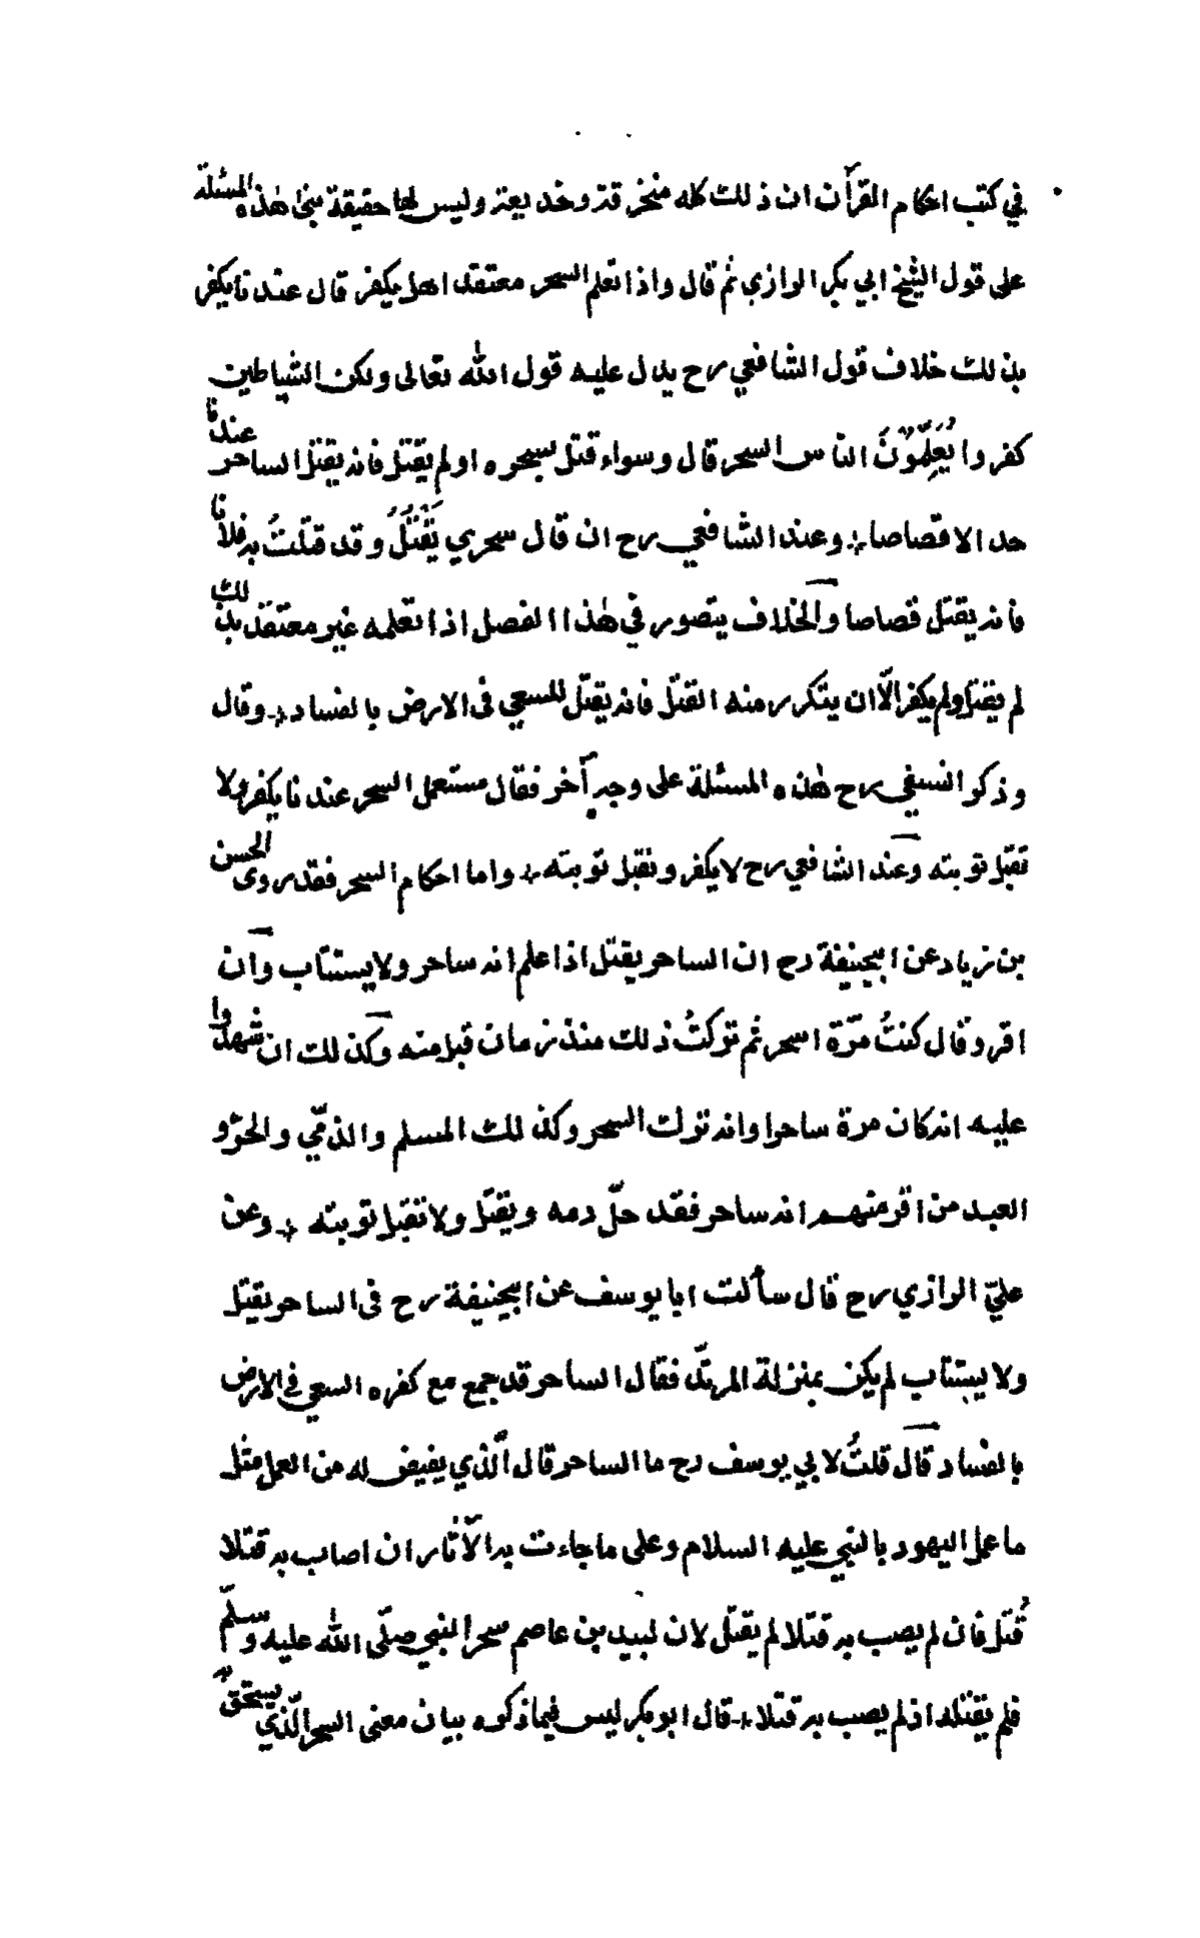 في كتب احكام القرآن ان ذلك كله منخرقة وخديعة وليس لها حقيقة فبنى هٰذه المسئلة
على قول الشيخ ابي بكر الرازي ثم قال واذا تعلم السحر معتقدا هل يكفر قال عندنا يكفر
بذلك خلاف قول الشافعي رح يدل عليه قول الله تعالى ولكن الشياطين
كفروا يُعَلِّمُوْنَ الناس السحر قال وسواء قتل بسحره اولم يقتل فانه يقتل الساحر عندنا
حدا لا قصاصا ؛ وعند الشافعي رح ان قال سحري يَقْتُلُ وقد قتلتُ به فلانا
فانه يقتل قصاصا والخلاف يتصور في هٰذا الفصل اذا تعلمه غير معتقد بذلك
لم يقتل ولم يكفر الّا ان يتكرر منه القتل فانه يقتل للسعي فى الارض بالفساد ؛ وقال
وذكر النسفي رح هٰذه المسئلة على وجهٍ آخر فقال مستعمل السحر عندنا يكفر ولا
تقبل توبته وعند الشافعي رح لا يكفر وتقبل توبته ؛ واما احكام السحر فقد روى الحسن
بن زياد عن ابيحنيفة رح ان الساحر يقتل اذا علم انه ساحر ولا يستتاب وان
اقر وقال كنتُ مرّة اسحر ثم تركتُ ذلك منذ زمان قبل منه وكذلك ان شهدوا
عليه انه كان مرة ساحرا وانه ترك السحر وكذلك المسلم والذمّي والحرّ و
العبد من اقر منهم انه ساحر فقد حلّ دمه ويقتل ولا تقبل توبته ؛ وعن
عليّ الرازي رح قال سألت ابا يوسف عن ابيحنيفة رح فى الساحر يقتل
ولا يستتاب لم يكن بمنزلة المرتدّ فقال الساحر قد جمع مع كفره السعي في الارض
بالفساد قال قلتُ لابي يوسف رح ما الساحر قال الّذي يفيض له من العمل مثل
ما عمل اليهود بالنبي عليه السلام وعلى ما جاءت به الآثار ان اصاب به قتلا
قُتل فان لم يصب به قتلا لم يقتل لان لبيد بن عاصم سحر النبي صلّى الله عليه وسلّم
فلم يقتله اذ لم يصب به قتلا ؛ قال ابو بكر ليس فيما ذكره بيان معنى السحر الّذي يستحق به